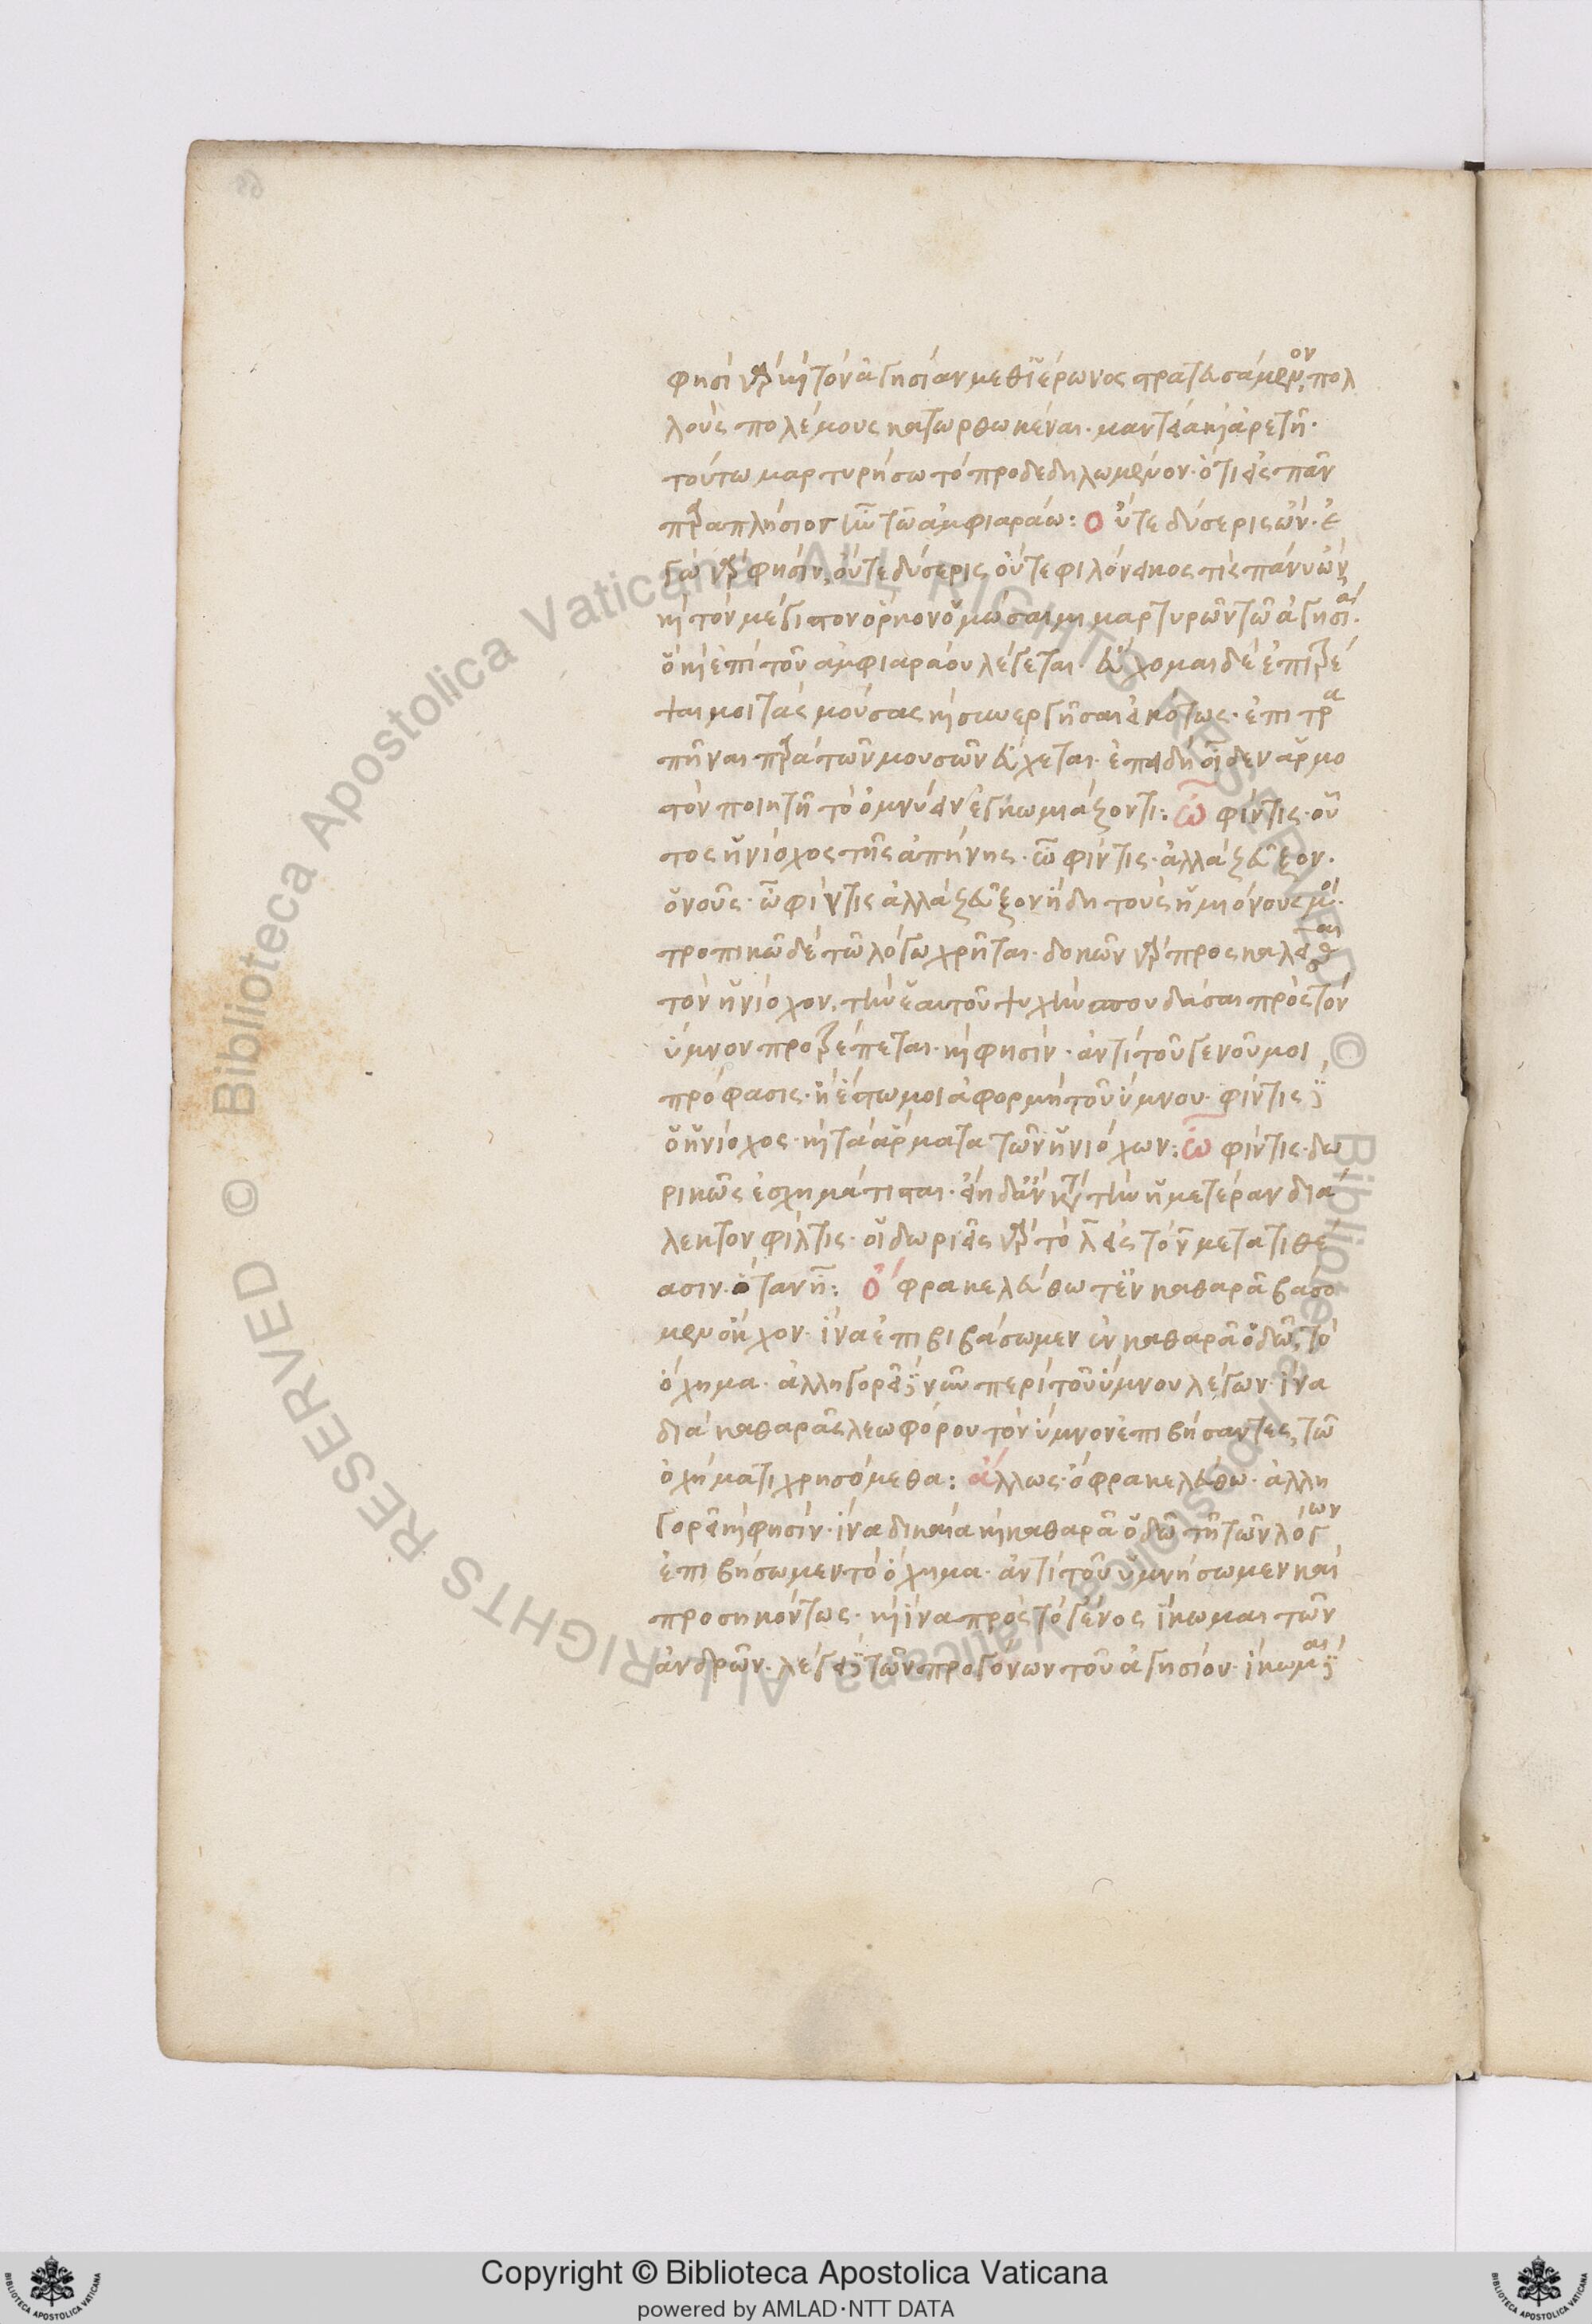 φησὶ γὰρ καὶ τὸν ἁγησίαν μεθ' ἱέρωνος στρατευσάμενον, πολ
λοὺς πολέμους κατωρθωκέναι. μαντεία καὶ ἀρετῆ.
τούτω μαρτυρήσω τὸ προδεδηλωμένον. ὅτι εἰς πᾶν
παραπλήσιος ἦν τῶ ἀμφιαράω: Οὔτε δύσερις ὤν. ἐ
γὼ γάρ φησιν, οὔτε δύσερις οὔτε φιλόνεικος τίς πάνυ ὤν,
καὶ τὸν μέγιστον ὅρκον ὀμώσαιμι μαρτυρῶν τῶ ἁγησία.
ὃ καὶ ἐπὶ τοῦ ἀμφιαράου λέγεται. εὔχομαι δὲ ἐπιτρέ
ψαι μοι τὰς μούσας καὶ συνεργῆσαι εἰκότως. ἐπιτρα
πῆναι παρὰ τῶν μουσῶν εὔχεται. ἐπειδὴ οἶδεν ἁρμο
τὸν ποιητῆ τὸ ὀμνύειν ἐγκωμιάζοντι: ὦ φίντις. οὗ
τος ἡνίοχος τῆς ἀπήνης. ὦ φίντις. ἀλλὰ ζεῦξον.
ὀνοῦς. ὦ φίντις ἀλλὰ ζεῦξον ἤδη τοὺς ἡμιόνους μοι.
τροπικῶ δὲ τῶ λόγω χρῆται. δοκῶν γὰρ προσκαλεῖσθαι
τὸν ἡνίοχον, τὴν ἑαυτοῦ ψυχὴν σπουδάσαι πρὸς τὸν
ὕμνον προτρέπεται. καὶ φησίν. ἀντὶ τοῦ γενοῦ μοι
πρόφασις. ἢ ἔστω μοι ἀφορμὴ τοῦ ὕμνου. φίντις δὲ
ὁ ἡνίοχος. καὶ τὰ ἅρματα τῶν ἡνιόχων: ὦ φίντις. δω
ρικῶς ἐσχημάτισται. εἴη δ' ἂν κατὰ τὴν ἡμετέραν διά
λεκτον φίλτις. οἱ δωριεῖς γὰρ τὸ λ εἰς τὸ ν μετατιθέ
ασιν. ὅταν ἦ: Ὄφρα κελεύθω τ' ἐν καθαρᾶ βάσο
μεν ὄκχον. ἵνα ἐπιβιβάσωμεν ἐν καθαρᾶ ὁδῶ, τὸ
ὄχημα. ἀλληγορεῖ δὲ νῦν περὶ τοῦ ὕμνου λέγων. ἵνα
διὰ καθαρᾶς λεωφόρου τὸν ὕμνον ἐπιβήσαντες, τῶ
ὀχήματι χρησόμεθα: ἄλλως. ὄφρα κελεύθω. ἀλλη
γορεῖ καὶ φησίν. ἵνα δικαία καὶ καθαρᾶ ὁδῶ τῆ τῶν λόγων
ἐπιβήσωμεν τὸ ὄχημα. ἀντὶ τοῦ ὑμνήσωμεν καὶ
προσηκόντως. καὶ ἵνα πρὸς τὸ γένος ἵκωμαι τῶν
ἀνδρῶν. λέγει δὲ τῶν προγόνων τοῦ ἁγησίου. ἵκωμαι δὲ
Copyright © Biblioteca Apostolica Vaticana
powered by AMLAD·NTT DATA